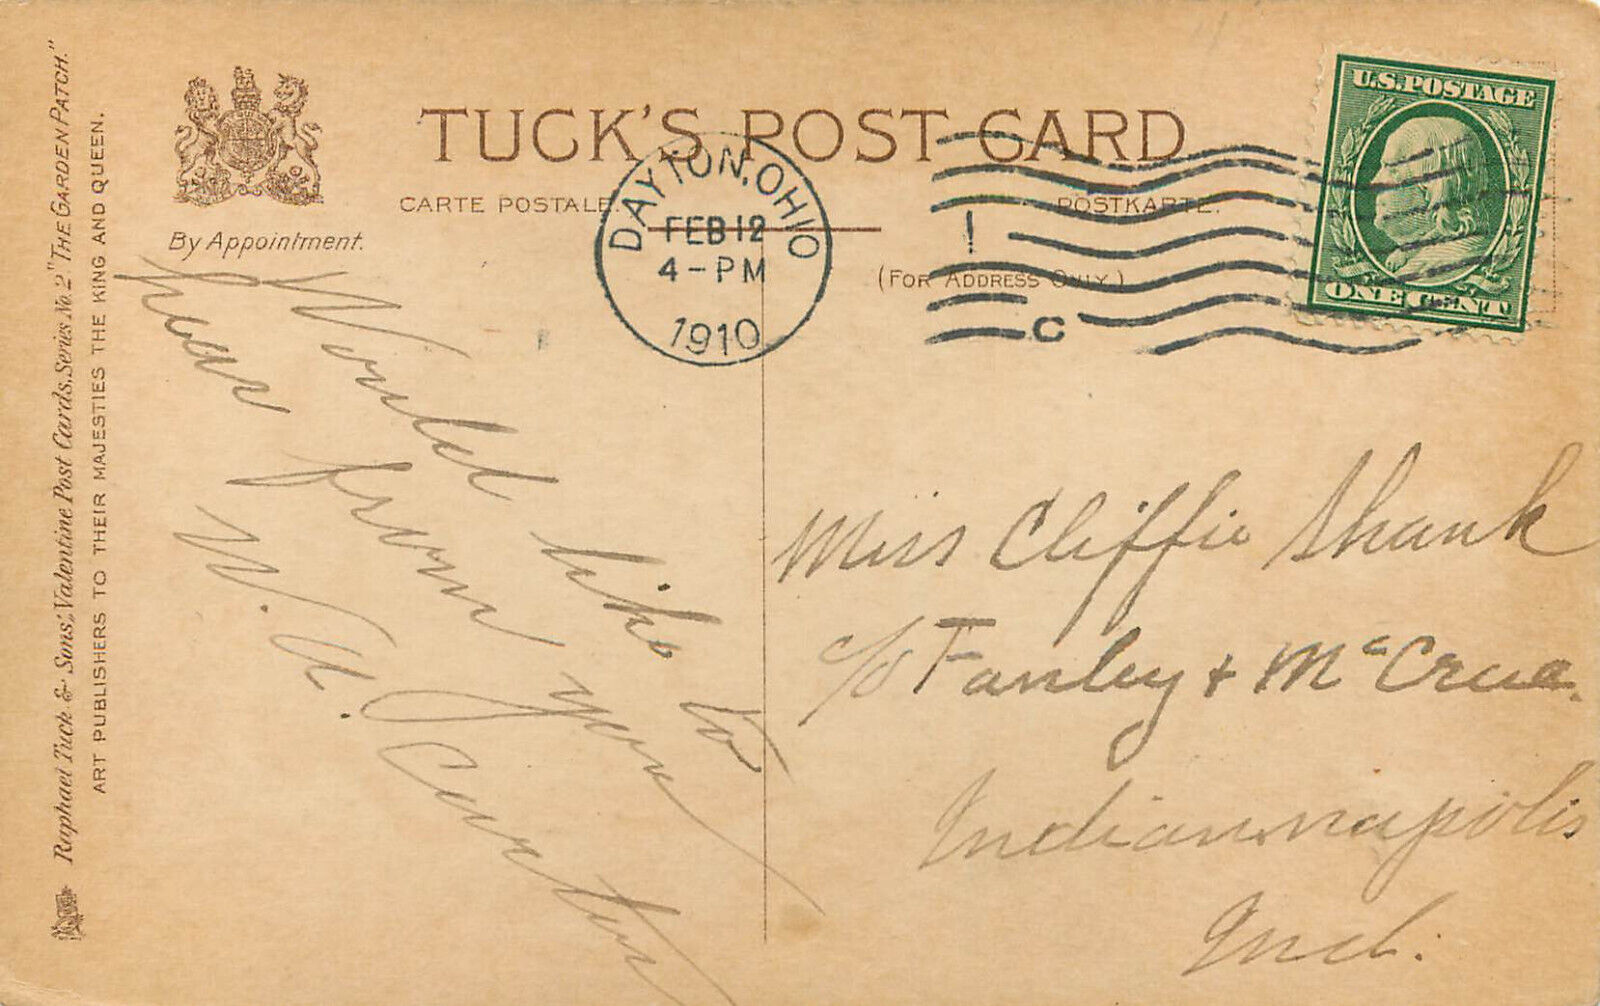 Raphael Tuck & Sons', Valentine Post Cards, Series No. 2 "THE GARDEN PATCH."
ART PUBLISHERS TO THEIR MAJESTIES THE KING AND QUEEN.
By Appointment.
TUCK'S POST CARD
CARTE POSTALE.
POSTKARTE.
(FOR ADDRESS ONLY.)
DAYTON, OHIO
FEB 12
4-PM
1910
C
U.S. POSTAGE
ONE CENT
Would like to
hear from you
W. A. Carter
Miss Cliffie Shank
c/o Fanley + McCrea.
Indiannapolis
Ind.